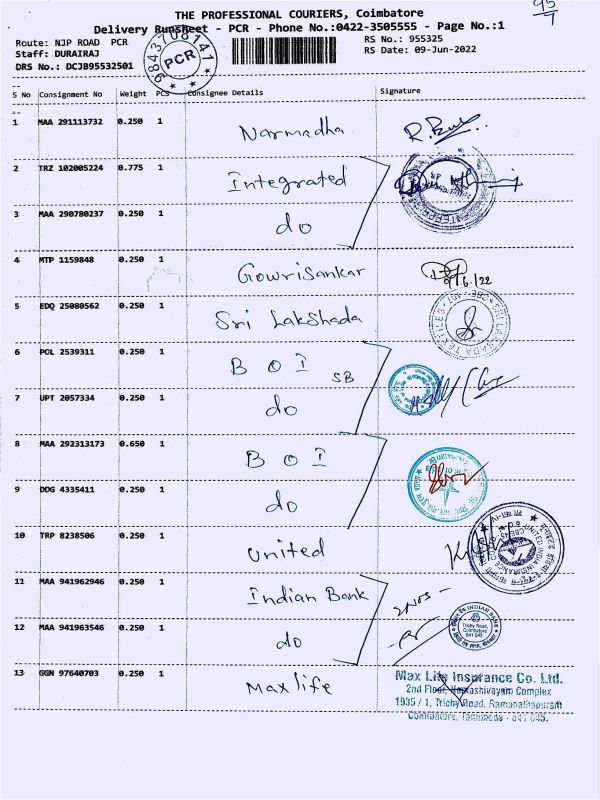 THE PROFESSIONAL COURIERS, Coimbatore
Delivery Runsheet - PCR - Phone No.:0422-3505555 - Page No.:1
Route: NJP ROAD PCR
RS No.: 955325
Staff: DURAIRAJ
RS Date: 09-Jun-2022
DRS No.: DCJB95532501
9843708141
PCR
S No Consignment No Weight PCS Consignee Details Signature
1 MAA 291113732 0.250 1 Narmadha
2 TRZ 102005224 0.775 1 Integrated
3 MAA 290780237 0.250 1 do
4 MTP 1159848 0.250 1 Gowrisankar
9/6/22
5 EDQ 25080562 0.250 1 Sri Lakshada
6 POL 2539311 0.250 1 B O I SB
7 UPT 2057334 0.250 1 do
8 MAA 292313173 0.650 1 B O I
9 DDG 4335411 0.250 1 do
10 TRP 8238506 0.250 1 United
11 MAA 941962946 0.250 1 Indian Bank
2 nos -
12 MAA 941963546 0.250 1 do
INDIAN BANK
Trichy Road,
Coimbatore
641 045
13 GGN 97640703 0.250 1 Maxlife
Max Life Insurance Co. Ltd.
2nd Floor, Complex
1935 / 1, Trichy Road, Ramanathapuram
Coimbatore, - 641 045.